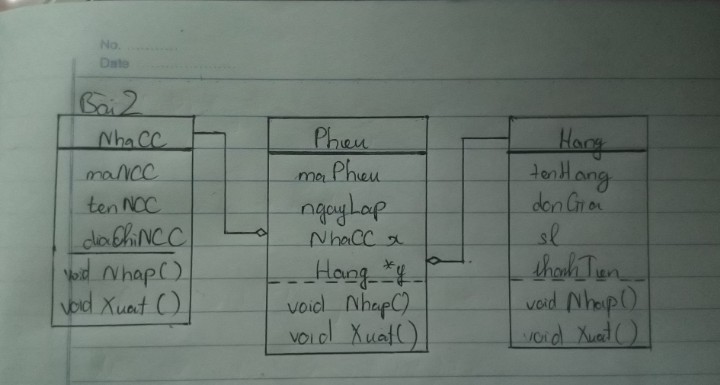 No.
Date
Bài 2
NhaCC
maNCC
tenNCC
diaChiNCC
void Nhap()
void Xuat()
Phieu
maPhieu
ngayLap
NhaCC x
Hang *y
void Nhap()
void Xuat()
Hang
tenHang
donGia
sl
thanhTien
void Nhap()
void Xuat()